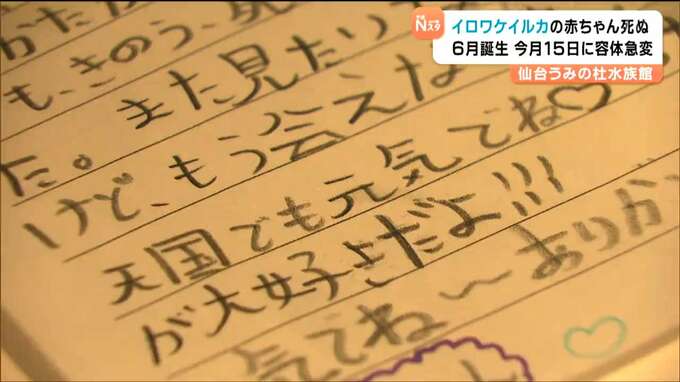 イロワケイルカの赤ちゃん死ぬ
6月誕生 今月15日に容体急変
仙台うみの杜水族館
Nスタ
も、きのう、死
また見たり
た。もう会えな
けど、
天国でも元気でね♡
が大好きだよ!!!
気でね〜ありが